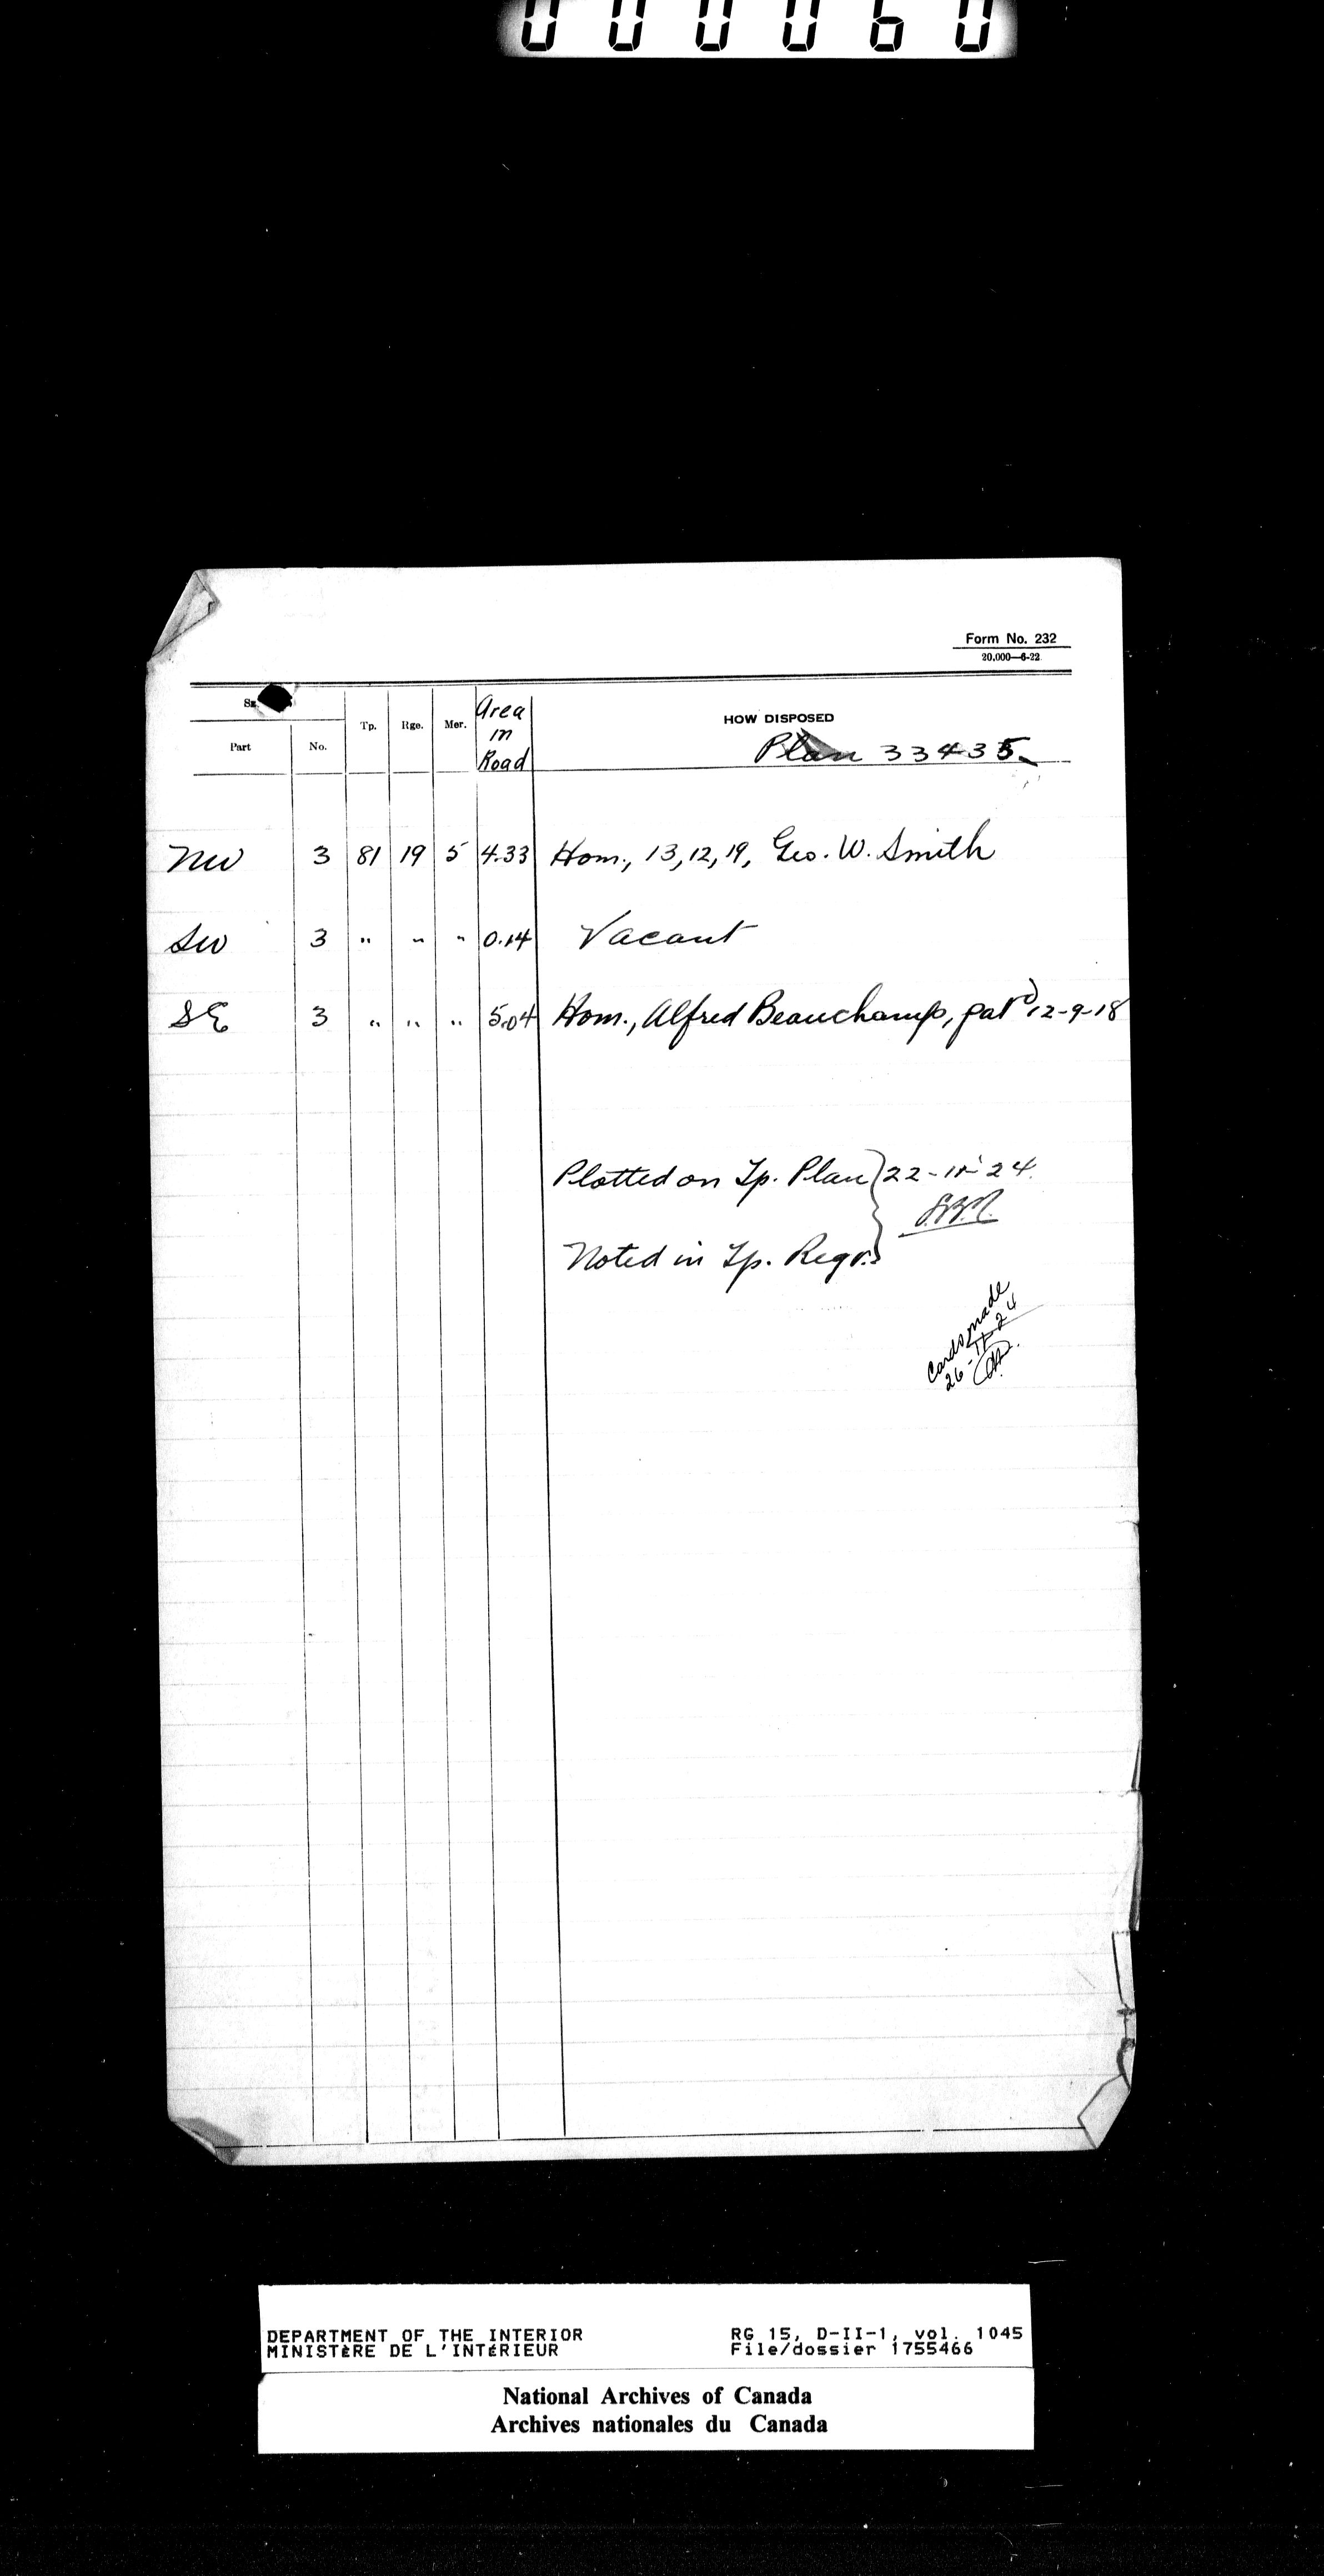 000060
Form No. 232
20,000—6-22
Part No. Tp. Rge. Mer. Area in Road HOW DISPOSED
Plan 33435
NW 3 81 19 5 4.33 Hom., 13, 12, 19, Geo. W. Smith
SW 3 " " " 0.14 Vacant
SE 3 " " " 5.04 Hom., Alfred Beauchamp, pat'd 12-9-18
Plotted on Tp. Plan } 22-11-24
Noted in Tp. Regr.
Cards made
26-11-24
DEPARTMENT OF THE INTERIOR RG 15, D-II-1, vol. 1045
MINISTÈRE DE L'INTÉRIEUR File/dossier 1755466
National Archives of Canada
Archives nationales du Canada